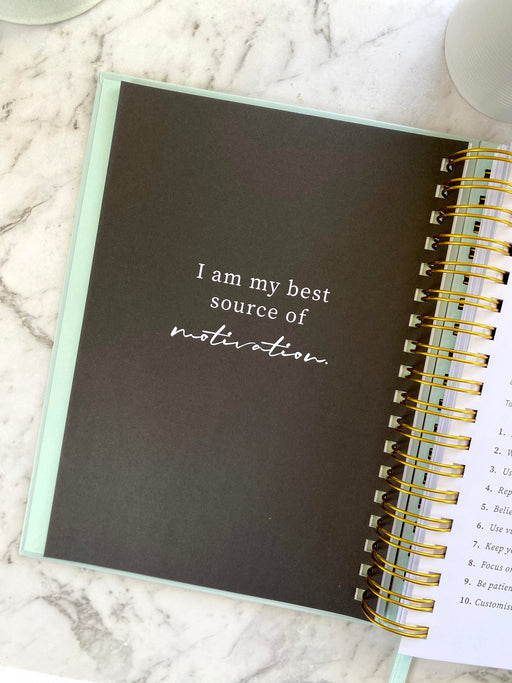 I am my best
source of
motivation.
To
1.
2.
3. Us
4. Rep
5. Belie
6. Use vi
7. Keep yo
8. Focus on
9. Be patien
10. Customis